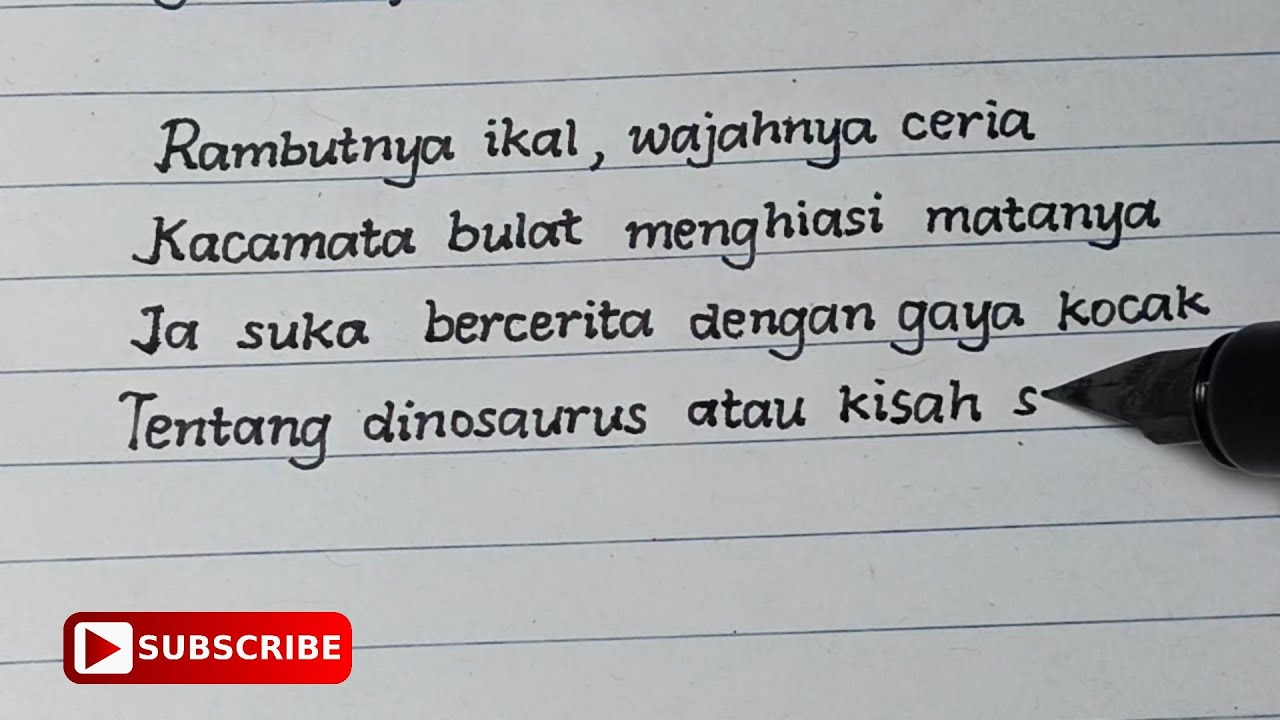 Rambutnya ikal, wajahnya ceria
Kacamata bulat menghiasi matanya
Ia suka bercerita dengan gaya kocak
Tentang dinosaurus atau kisah s
SUBSCRIBE